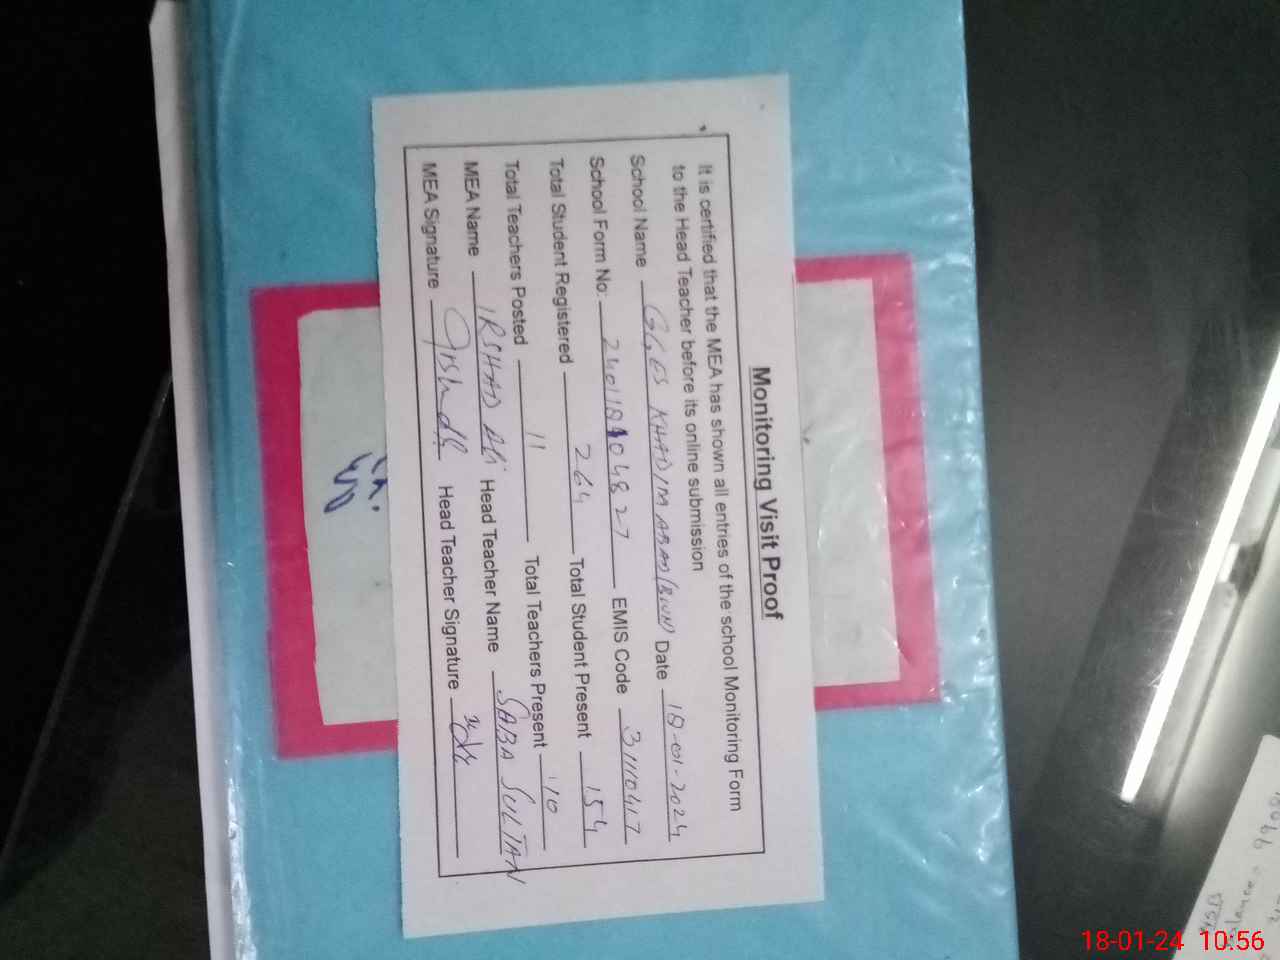 Monitoring Visit Proof
It is certified that the MEA has shown all entries of the school Monitoring Form
to the Head Teacher before its online submission
School Name GGES KHADIM ABAD (BWN) Date 18-01-2024
School Form No: 24011804827 EMIS Code 31110417
Total Student Registered 264 Total Student Present 154
Total Teachers Posted 11 Total Teachers Present 10
MEA Name IRSHAD Ali Head Teacher Name SABA SULTAN
MEA Signature Head Teacher Signature
18-01-24 10:56